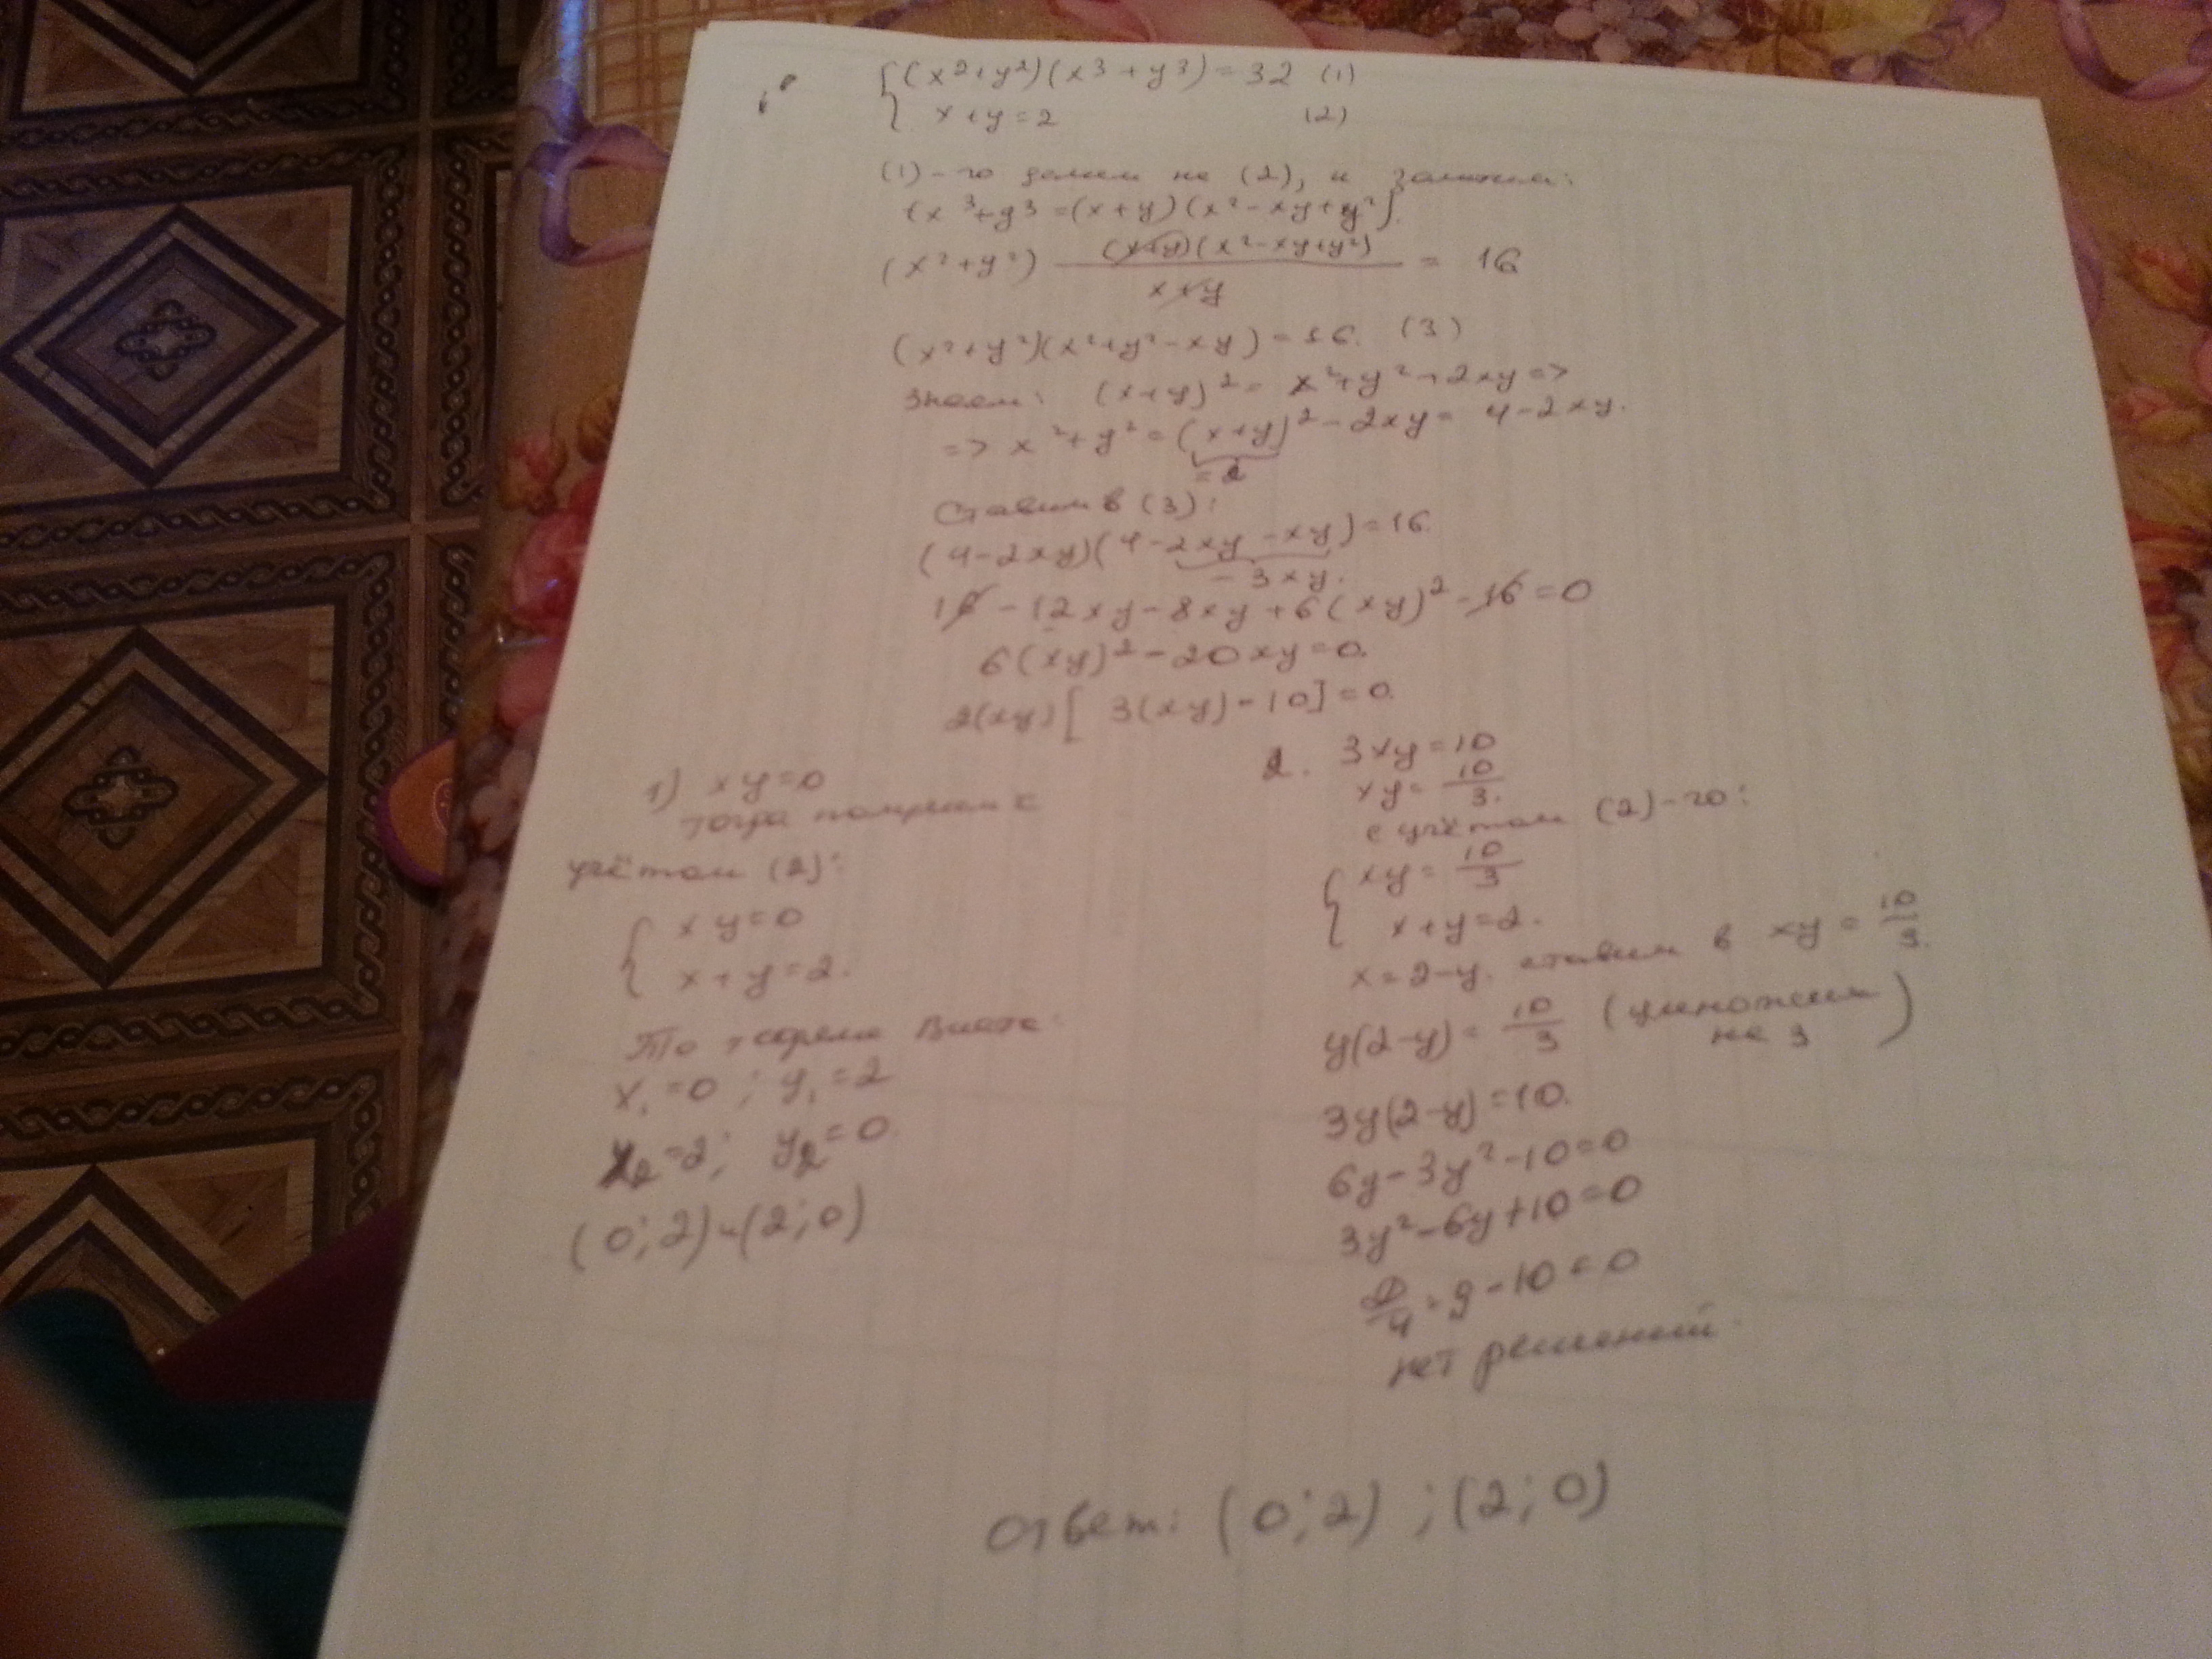 { (x²+y²)(x³+y³)=32 (1)
x+y=2 (2)
(1)-го делим на (2), и заметим:
(x³+y³=(x+y)(x²-xy+y²).
(x²+y²) (x+y)(x²-xy+y²) / x+y = 16
(x²+y²)(x²+y²-xy)=16. (3)
знаем: (x+y)²= x²+y²+2xy =>
=> x²+y²=(x+y)²-2xy= 4-2xy.
=2
Ставим в (3):
(4-2xy)(4-2xy-xy)=16.
-3xy.
16-12xy-8xy+6(xy)²-16=0
6(xy)²-20xy=0.
2(xy)[ 3(xy)-10]=0.
1) xy=0
тогда получим с
учётом (2):
{ xy=0
x+y=2.
По теореме Виета:
x₁=0 ; y₁=2
x₂=2; y₂=0.
(0;2) и (2;0)
2. 3xy=10
xy=10/3.
с учётом (2)-го:
{ xy=10/3
x+y=2.
x=2-y. ставим в xy=10/3.
y(2-y)=10/3 (умножим
на 3)
3y(2-y)=10.
6y-3y²-10=0
3y²-6y+10=0
D/4=9-10=0
нет решений.
Ответ: (0;2) ; (2;0)